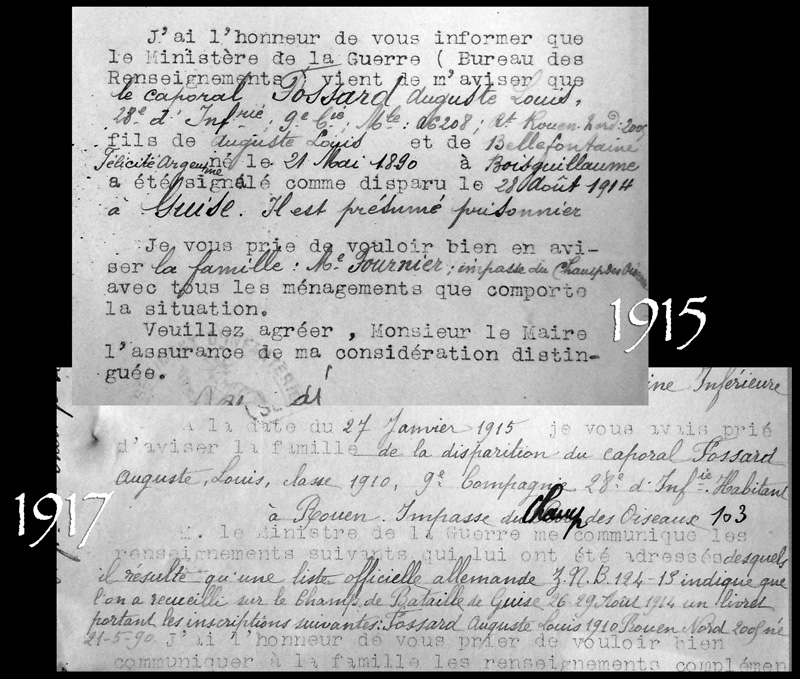 J'ai l'honneur de vous informer que
le Ministère de la Guerre ( Bureau des
Renseignements ) vient de m'aviser que
le caporal Fossard Auguste Louis,
28e d'Infrie, 9e Cie, Mle : 06208, Rt Rouen Nord : 2005
fils de Auguste Louis et de Bellefontaine
Félicité Argentine né le 21 Mai 1890 à Boisguillaume
a été signalé comme disparu le 28 Août 1914
à Guise. Il est présumé prisonnier
Je vous prie de vouloir bien en avi-
ser la famille : Me Fournier, impasse du Champ des Oiseaux
avec tous les ménagements que comporte
la situation.
Veuillez agréer , Monsieur le Maire
l'assurance de ma considération distin-
guée.
1915
ine Inférieure
A la date du 27 Janvier 1915 je vous avais prié
d'aviser la famille de la disparition du caporal Fossard
Auguste, Louis, classe 1910, 9e Compagnie 28e d'Infie. Habitant
à Rouen. Impasse du Champ des Oiseaux 103
1917
M. le Ministre de la Guerre me communique les
renseignements suivants qui lui ont été adressés desquels
il résulte qu'une liste officielle allemande Z.N.B. 124-15 indique que
l'on a recueilli sur le Champ de Bataille de Guise 26-29 Août 1914 un livret
portant les inscriptions suivantes : Fossard Auguste Louis 1910 Rouen Nord 2005 né
21-5-90. J'ai l'honneur de vous prier de vouloir bien
communiquer à la famille les renseignements complémen